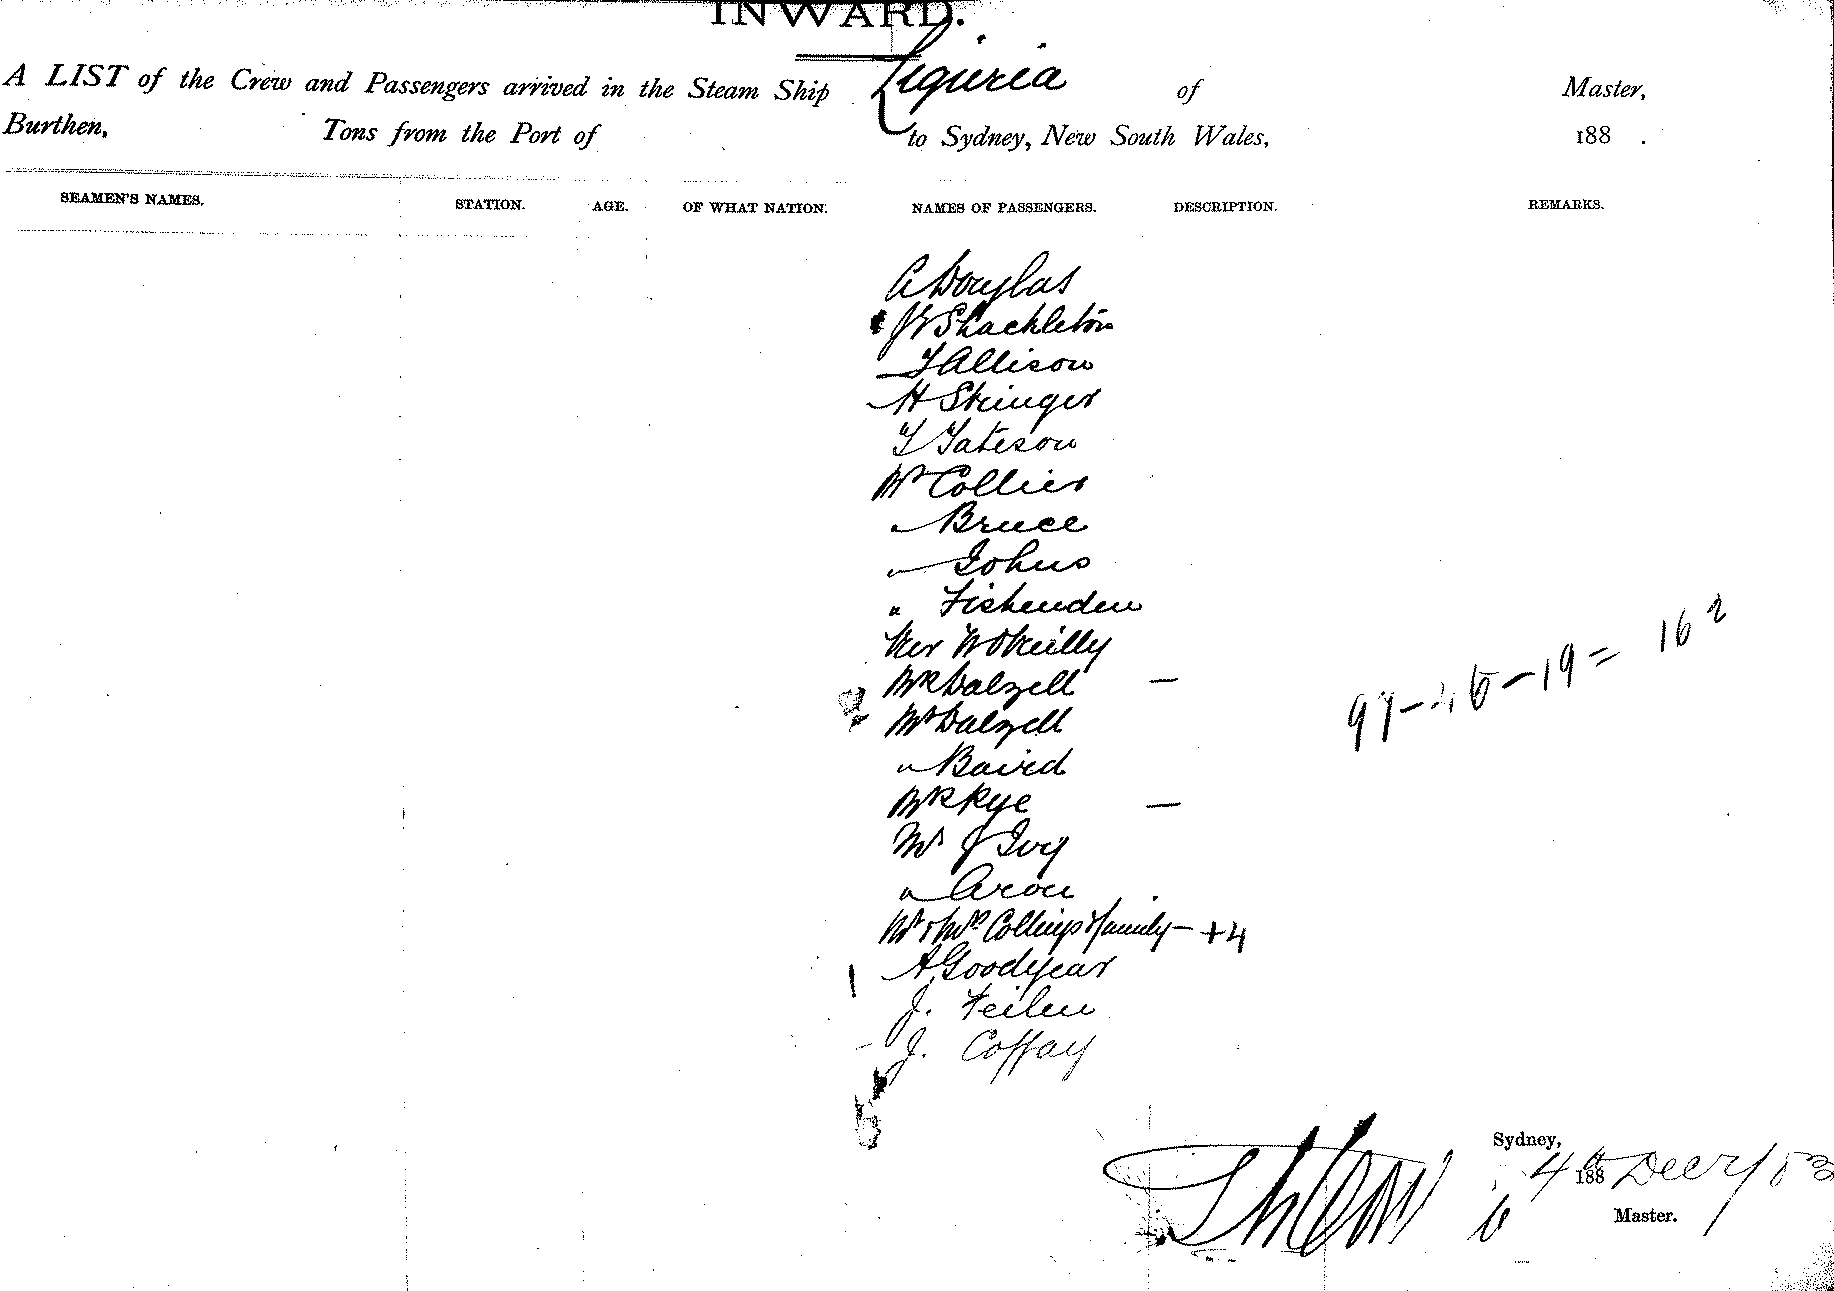 INWARD.
A LIST of the Crew and Passengers arrived in the Steam Ship Liguria of Master,
Burthen, Tons from the Port of to Sydney, New South Wales, 188 .
SEAMEN'S NAMES. STATION. AGE. OF WHAT NATION. NAMES OF PASSENGERS. DESCRIPTION. REMARKS.
A Douglas
Shackleton
Allison
H Stringer
Mr Collier
" Bruce
" Johns
" Fishenden
Rev W O'Reilly
Mrs Dalzell —
Mr Dalzell
" Baird
Mrs Rye —
Mr J Ivy
" Aron
Mr & Mrs Collings & family — +4
A Goodyear
J. Feilen
J. Coffay
Sydney,
4th 188 Decr / 83
Master.